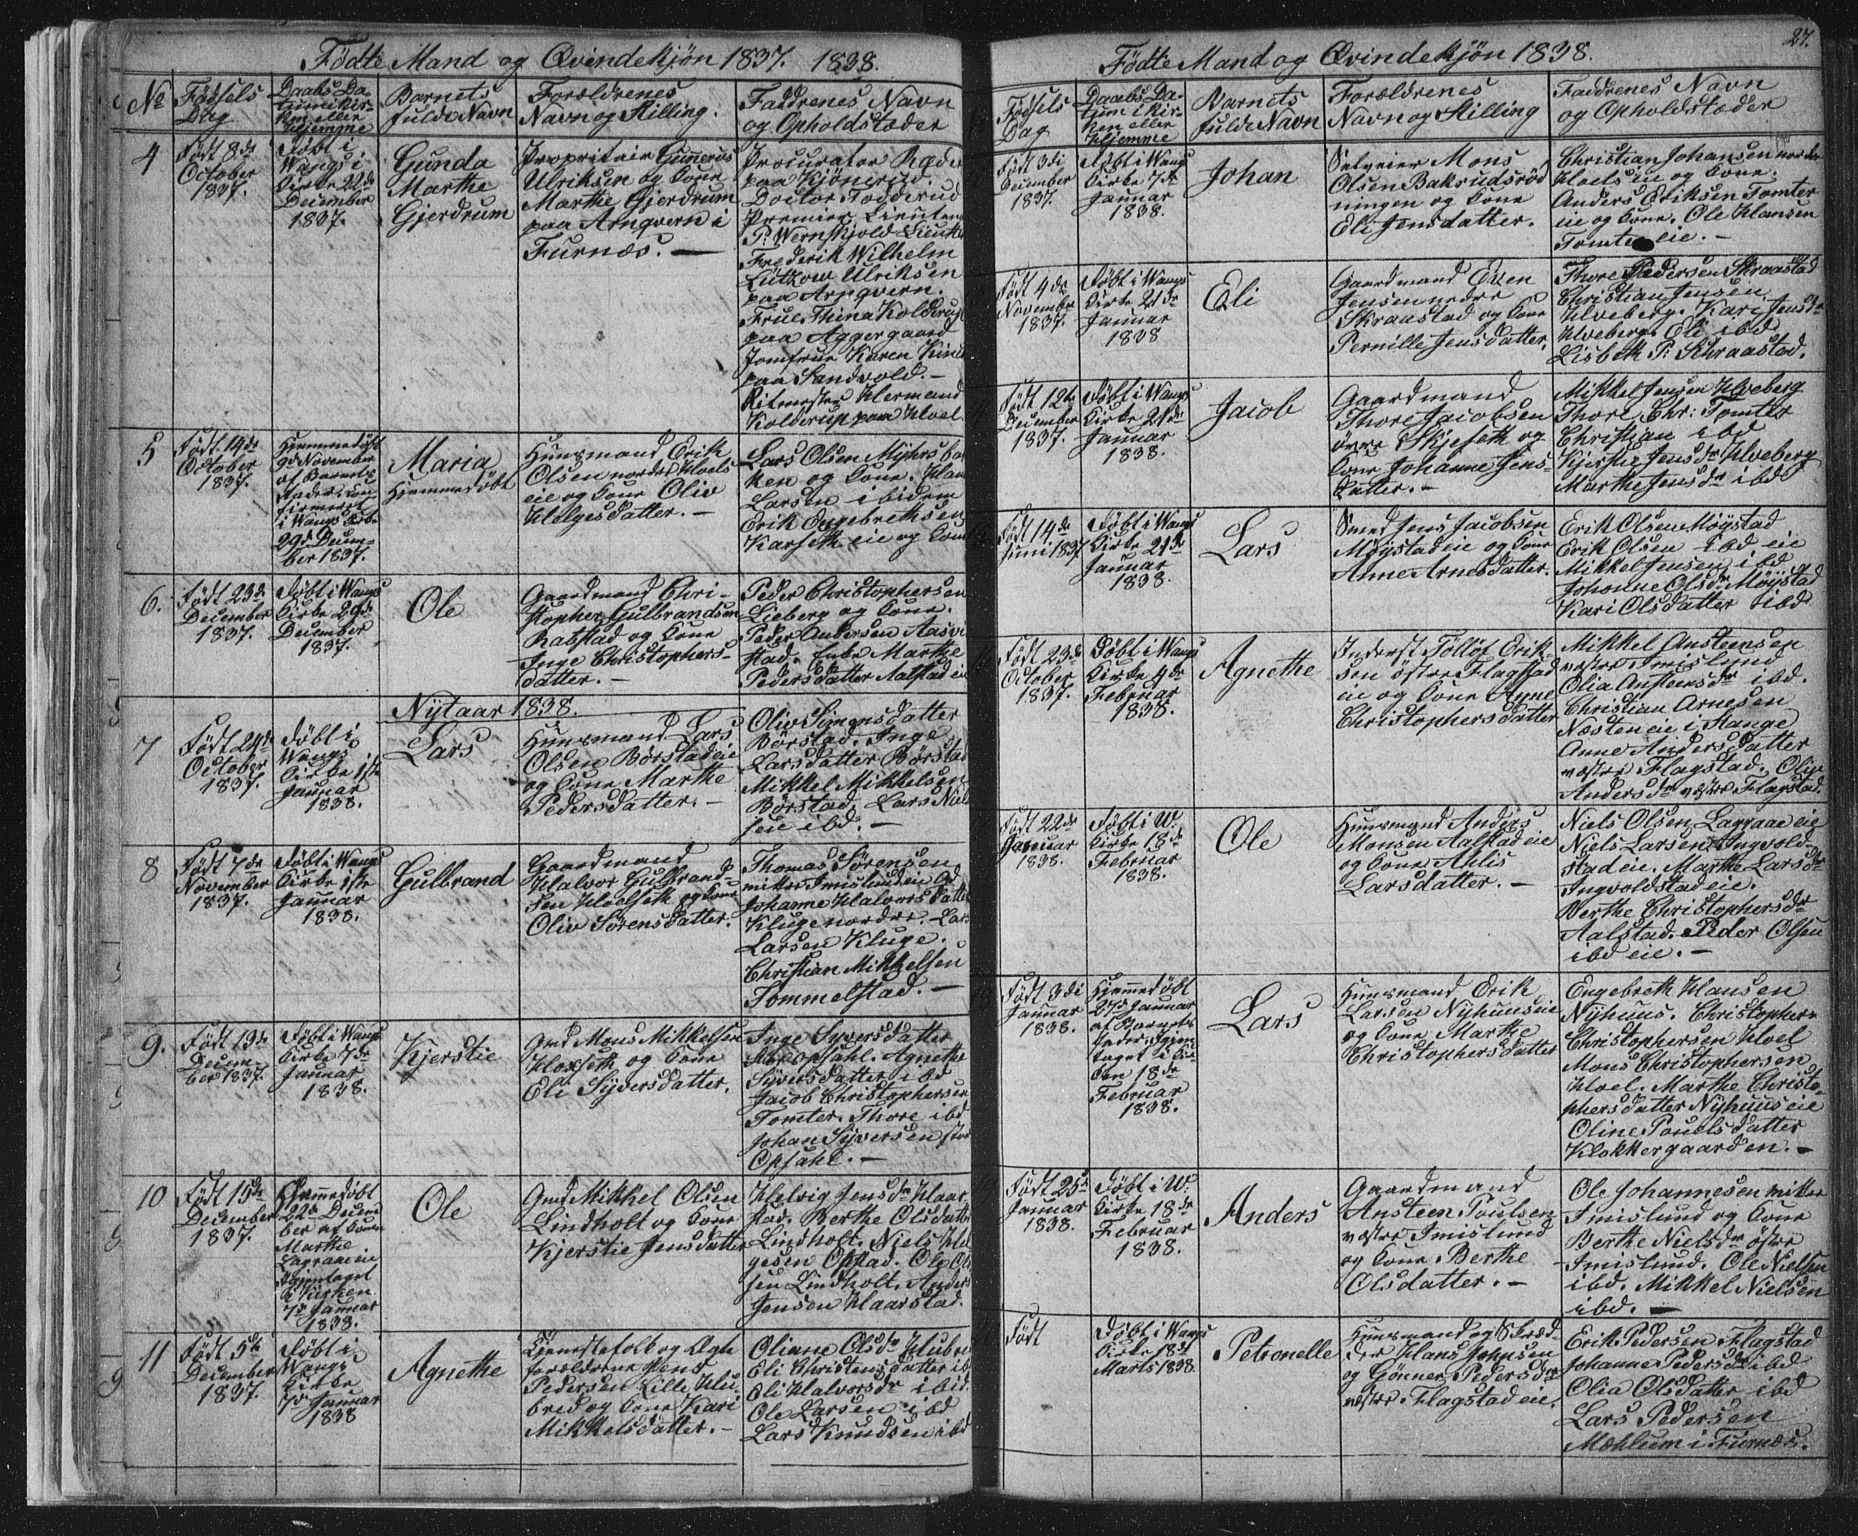 Fødte Mand og Qvindekjøn 1837. 1838.
No
Fødsels
Dag
Daabs Da-
tum i Kir-
ken eller
Hjemme
Barnets
fulde Navn
Forældrenes
Navn og Stilling.
Faddrenes Navn
og Opholdstæder
4
Født 8de
October
1837.
Døbt i
Wangs
Kirke 22de
December
1837.
Gunda
Marthe
Gjerdrum
Propritair Gunerus
Ulriksen og Kone
Marthe Gjerdrum
paa Arnqvern i
Furnæs. —
Procurator Ræder
paa Kjønerud.
Doctor Todderud
Premier Lieuten
P: Wernskjold Lieut
Frederik Wilhelm
Lützow Ulriksen
paa Arnqvern.
Frue Thina Kolderup
paa Aggergaard
Jomfrue Karen
paa Sandvold. —
Ritmester Hermand
Kolderup paa Hoel
5
Født 14de
October
1837.
Hjemmedøbt
9de November
af Barnets
Fader. Con-
firmert
i Wangs Kirke
29de Decem-
ber 1837.
Maria
Hjemmedøbt
Huusmand Erik
Olsen nordre Hoels
eie og Kone Oliv
Helgesdatter. —
Lars Olsen Myhrsbak
ken og Kone. Hans
Larsen ibidem
Erik Engebrethsen
Karseth eie og Kone
6.
Født 23de
December
1837.
Døbt i Wangs
Kirke 29de
December
1837.
Ole
Gaardmand Chri-
stopher Gulbrandsen
Rabstad og Kone
Inge Christophers-
datter. —
Peder Christophersen
Lieberg og Kone.
Peder Andersen Aasvi
stad. Enke Marthe
Pedersdatter Aalstad eie
Nytaar 1838.
7
Født 24de
October
1837.
Døbt i
Wangs
Kirke 1ste
Januar
1838.
Lars
Huusmand Lars
Olsen Børstad eie
og Kone Marthe
Pedersdatter. —
Oliv Simensdatter
Børstad. Inge
Larsdatter Børstad
Mikkel Mikkelsen
Børstad. Lars Niel
sen ibd. —
8
Født 7de
November
1837.
Døbt i Wangs
Kirke 1ste
Januar
1838.
Gulbrand
Gaardmand
Halvor Gulbrand-
sen Hoelseth og Kone
Oliv Sørensdatter.
Thomas Sørensen
mitter Imislund eie og
Johanne Halvorsdatter
Kluge nordre. Lars
Larsen Kluge.
Christian Mikkelsen
Sommelstad. —
9.
Født 19de
Decem-
ber 1837.
Døbt i Wangs
Kirke 7de
Januar
1838.
Kjerstie
Gmd Mons Mikkelsen
Hoxseth og Kone
Eli Syversdatter.
Inge Syversdatter
Opsahl. Agnethe
Syversdatter ibd
Jacob Christophersen
Tomter. Thore ibd
Johan Syversen stor
Opsahl. —
10
Født 15de
December
1837.
Hjemmedøbt
22de Decem
ber af Kone
Marthe
Lagraae eie
igjentaget
i Kirken
7de Januar
1838.
Ole
Gmd Mikkel Olsen
Lindholt og Kone
Kjerstie Jensdatter
Helvig Jensdr Haar
stad. Berthe Olsdatter
Lindholt. Niels Hel
gesen Opstad. Ole Ol
sen Lindholt. Anders
Jensen Haarstad.
11
Født 5te
December
1837.
Døbt i
Wangs
Kirke
7de Januar
1838
Agnethe
Tjenestefolk og Ægte
forældrene Jens
Pedersen Lille Hu-
bred og Kone Kari
Mikkelsdatter. —
Oliane Olsdr Hubred
Eli Christensdatter ibd
Oli Halvorsdr ibid.
Ole Larsen ibd
Lars Knudsen ibd
27.
Fødte Mand og Qvindekjøn 1838.
Fødsels
Dag
Daabs Da-
tum i Kir-
ken eller
Hjemme
Barnets
fulde Navn
Forældrenes
Navn og Stilling
Faddrenes Navn
og Opholdstæder
Født 3di
December
1837.
Døbt i Wangs
Kirke 7de
Januar
1838.
Johan
Selveier Mons
Olsen Baksudsrød
ningen og Kone
Eli Jensdatter.
Christian Johansen nordre
Hoels eie og Kone.
Anders Eriksen Tomter
eie og Kone. Ole Hansen
Tomter eie. —
Født 4de
November
1837.
Døbt i Wangs
Kirke 21de
Januar
1838
Eli
Gaardmand Even
Jensen nedre
Skraastad og Kone
Pernille Jensdatter.
Thore Pedersen Skraastad
Christian Jensen
Hveberg. Kari Jensdr
Hveberg. Eli ibd
Lisbeth P: Skraastad.
Født 12te
December
1837.
Døbt i Wangs
Kirke 21de
Januar
1838.
Jacob
Gaardmand
Thore Jacobsen
øvre Skjeseth og
Kone Johanne Jens-
datter. —
Mikkel Jensen Hveberg
Thore Chr: Tomter
Christian ibd
Kjerstie Jensdr Hveberg
Marthe Jensdr ibd
Født 14de
Juni 1837
Døbt i Wangs
Kirke 21de
Januar
1838.
Lars
Smed Jens Jacobsen
Møystad eie og Kone
Anne Arnesdatter.
Erik Olsen Møystad
Erik Olsen ibd eie
Mikkel Jensen ibd
Johanne Olsdr Møystad
Kari Olsdatter ibd
Født 23de
October
1837.
Døbt i Wangs
Kirke 4de
Februar
1838.
Agnethe
Inderst Tølløf Erik-
sen østre Flagstad
eie og Kone Agne
Christophersdatter
Mikkel Ansteensen
vestre Imislund
Olia Ansteensdr ibd.
Christian Arnesen
Nesten eie i Stange
Anne Andersdatter
væstre Flagstad. Oliv
Andersdr væstre Flagstad.
Født 22de
Januar
1838.
Døbt i W:
Kirke 18de
Februar
1838.
Ole
Huusmand Anders
Monsen Aalstad eie
og Kone Ahlis
Larsdatter. —
Niels Olsen Lagraae eie
Niels Larsen Ingvold-
stad eie. Marthe Larsdr
Ingvoldstad eie.
Berthe Christophersdr
Aalstad. Peder Olsen
ibd eie. —
Født 3di
Januar
1838.
Hjemmedøbt
27de Januar
af Barnets
Fader igjen-
taget i Kir-
ken 18de
Februar
1838.
Lars
Huusmand Erik
Larsen Nyhuus eie
og Kone Marthe
Christophersdatter
Engebreth Hansen
Nyhuus. Christopher
Christophersen Hoel
Mons Christophersen
Hoel. Marthe Christo-
phersdatter Nyhuus eie
Oline Pouelsdatter
Klokkergaarden. —
Født 25de
Januar
1838.
Døbt i W:
Kirke 18de
Februar
1838.
Anders
Gaardmand
Ansteen Poulsen
væstre Imislund
og Kone Berthe
Olsdatter. —
Ole Johannesen mitter
Imislund og Kone
Berthe Nielsdr østre
Imislund. Ole Nielsen
ibd. Mikkel Nielsen
ibd. —
Født
Døbt i Wangs
Kirke 18de
Marts 1838.
Petronelle
Huusmand og Skræd-
der Hans Johnsen
og Gunner Pedersdr
væstre Flagstad eie.
Erik Pedersen Flagstad
Johanne Pedersdr ibd
Olia Olsdatter ibd
Lars Pedersen
Mæhlum i Furnæs.